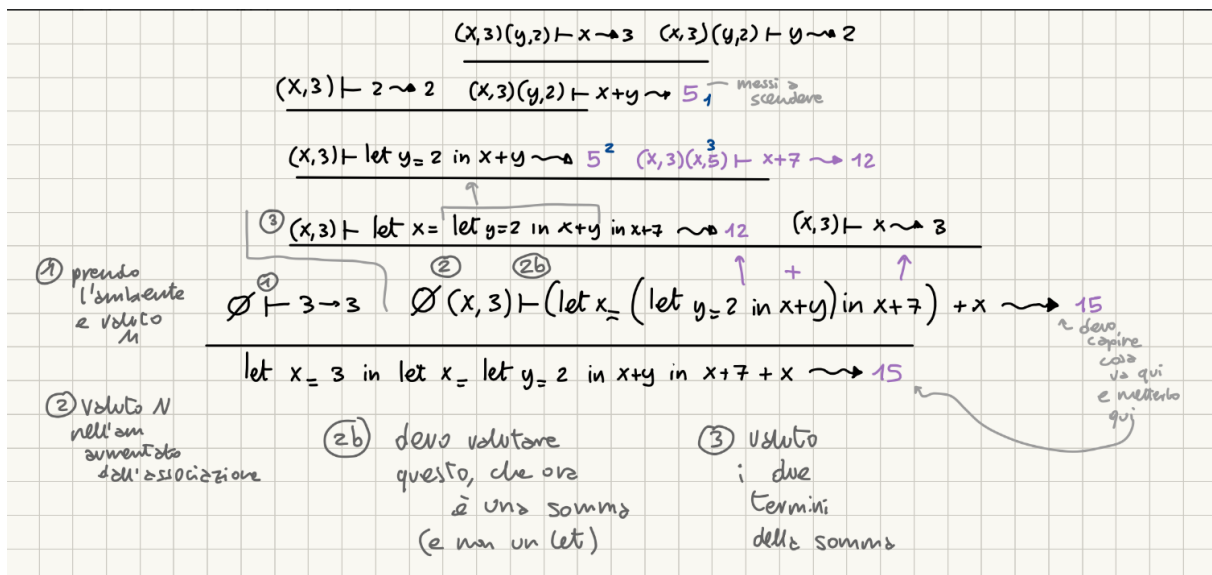 (x,3)(y,2) ⊢ x ⇝ 3 (x,3)(y,2) ⊢ y ⇝ 2
(x,3) ⊢ 2 ⇝ 2 (x,3)(y,2) ⊢ x+y ⇝ 5 1 messi a
scendere
(x,3) ⊢ let y = 2 in x+y ⇝ 5 2 (x,3)(x,5) 3 ⊢ x+7 ⇝ 12
③ (x,3) ⊢ let x = let y=2 in x+y in x+7 ⇝ 12 (x,3) ⊢ x ⇝ 3
① prendo
l'ambiente
e valuto
M
① ② 2b ↑ + ↑
∅ ⊢ 3 → 3 ∅ (x,3) ⊢ (let x = (let y = 2 in x+y) in x+7) + x ⇝ 15
devo
capire
cosa
va qui
e metterlo
qui
let x = 3 in let x = let y = 2 in x+y in x+7 + x ⇝ 15
② valuto N
nell'am
aumentato
dall'associazione
2b devo valutare
questo, che ora
è una somma
(e non un let)
③ valuto
i due
termini
della somma